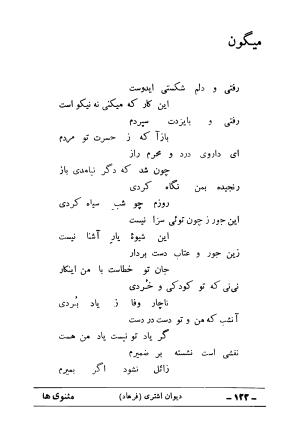 میگون
رفتی و دلم شکستی ایدوست
این کار که میکنی نه نیکو است
رفتی و بایزدت سپردم
بازآ که ز حسرت تو مردم
ای داروی درد و محرم راز
چون شد که دگر نیامدی باز
رنجیده بمن نگاه کردی
روزم چو شب سیاه کردی
این جور ز چون توئی سزا نیست
این شیوهٔ یار آشنا نیست
زین جور و عتاب دست بردار
جان تو خطاست با من اینکار
نی‌نی که تو کودکی و خُردی
ناچار وفا ز یاد بُردی
آنشب که من و تو دست در دست
گر یاد تو نیست یاد من هست
نقشی است نشسته بر ضمیرم
زائل نشود اگر بمیرم
مثنوی ها دیوان اشتری (فرهاد) - ۱۲۲ -